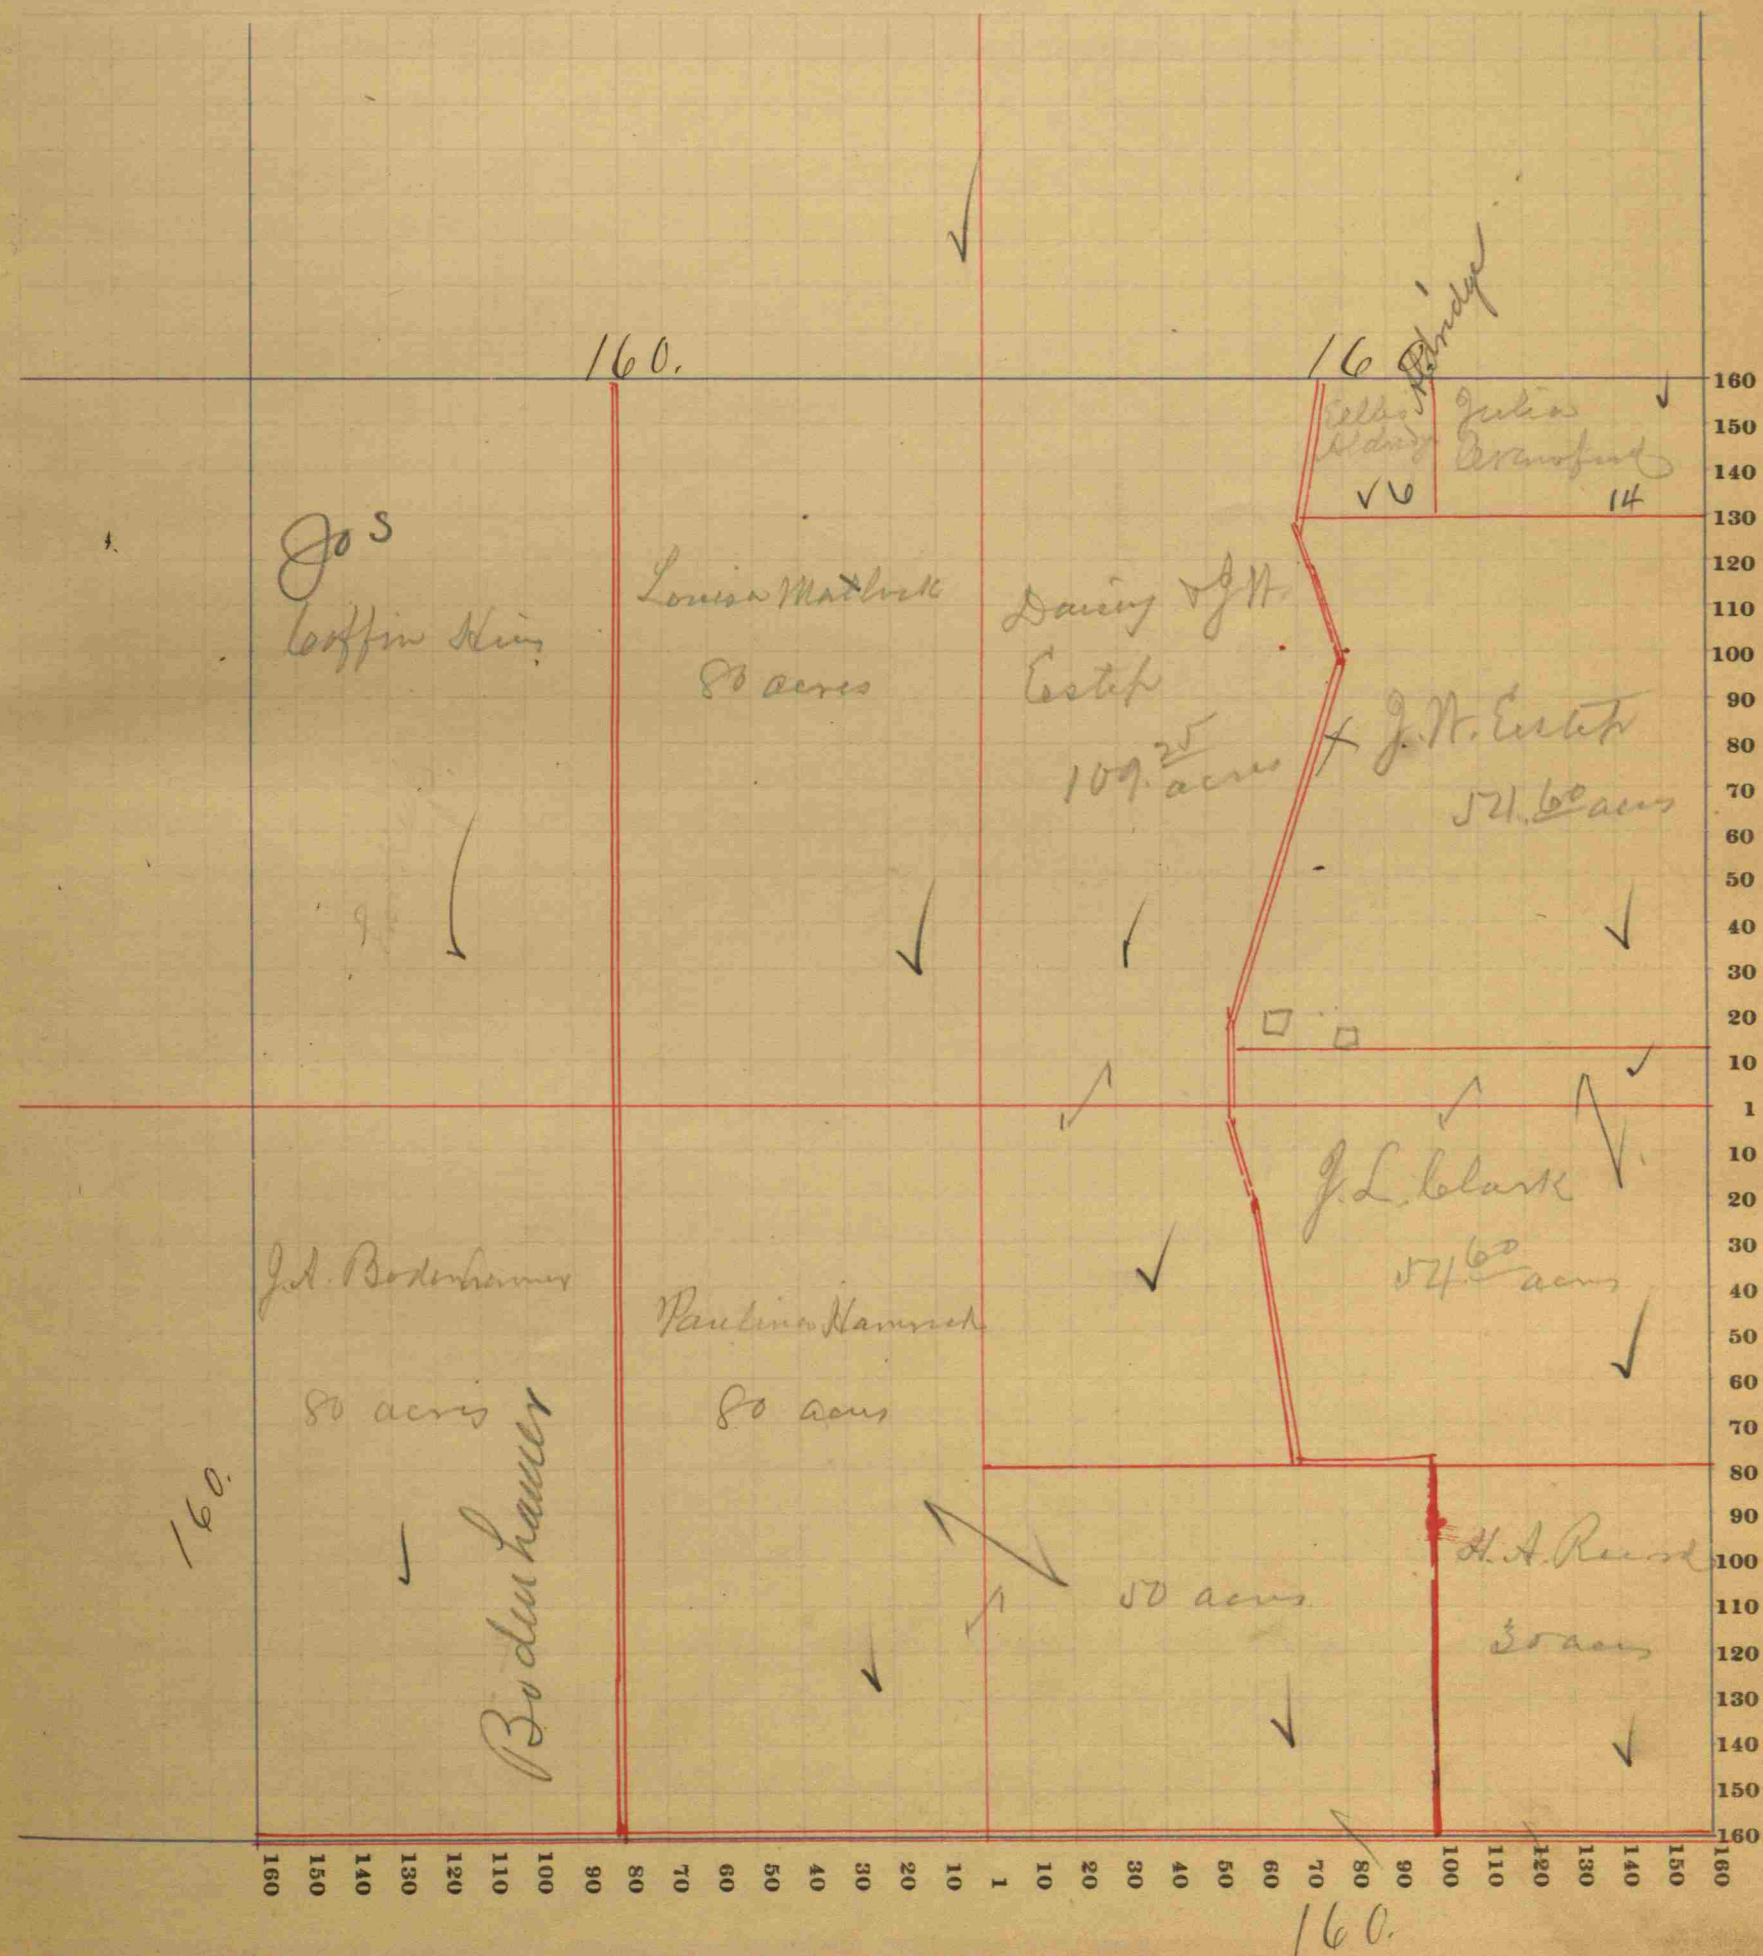 160.
16
Aldridge
Aldridge
Julia
6
14
Jos
Coffin
Louisa Matlock
80 acres
& J.W.
Estep
109.25
acres
J.W. Estep
54.60 acres
J.L. Clark
54 60 acres
J.A. Bodenhamer
80 acres
Bodenhamer
Paulina
80 acres
50 acres
H.A.
30 acres
160.
160
150
140
130
120
110
100
90
80
70
60
50
40
30
20
10
1
10
20
30
40
50
60
70
80
90
100
110
120
130
140
150
160
160 150 140 130 120 110 100 90 80 70 60 50 40 30 20 10 1 10 20 30 40 50 60 70 80 90 100 110 120 130 140 150 160
160.